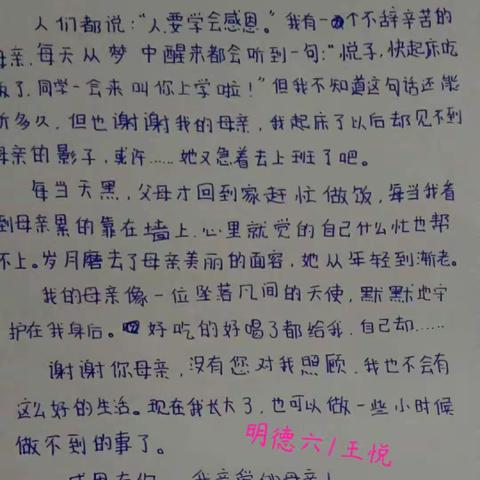 人们都说:“人要学会感恩。”我有一个不辞辛苦的
母亲,每天从梦中醒来都会听到一句:“悦子,快起床吃
饭了,同学一会来叫你上学啦!”但我不知道这句话还能
听多久,但也谢谢我的母亲,我起床了以后却见不到
母亲的影子,或许……她又急着去上班了吧。
每当天黑,父母才回到家赶忙做饭,每当我看
到母亲累的靠在墙上,心里就觉的自己什么忙也帮
不上。岁月磨去了母亲美丽的面容,她从年轻到渐老。
我的母亲像一位坠落凡间的天使,默默地守
护在我身后。好吃的好喝了都给我,自己却……
谢谢你母亲,没有您对我照顾,我也不会有
这么好的生活。现在我长大了,也可以做一些小时候
做不到的事了。
明德六/王悦
我亲爱的母亲!